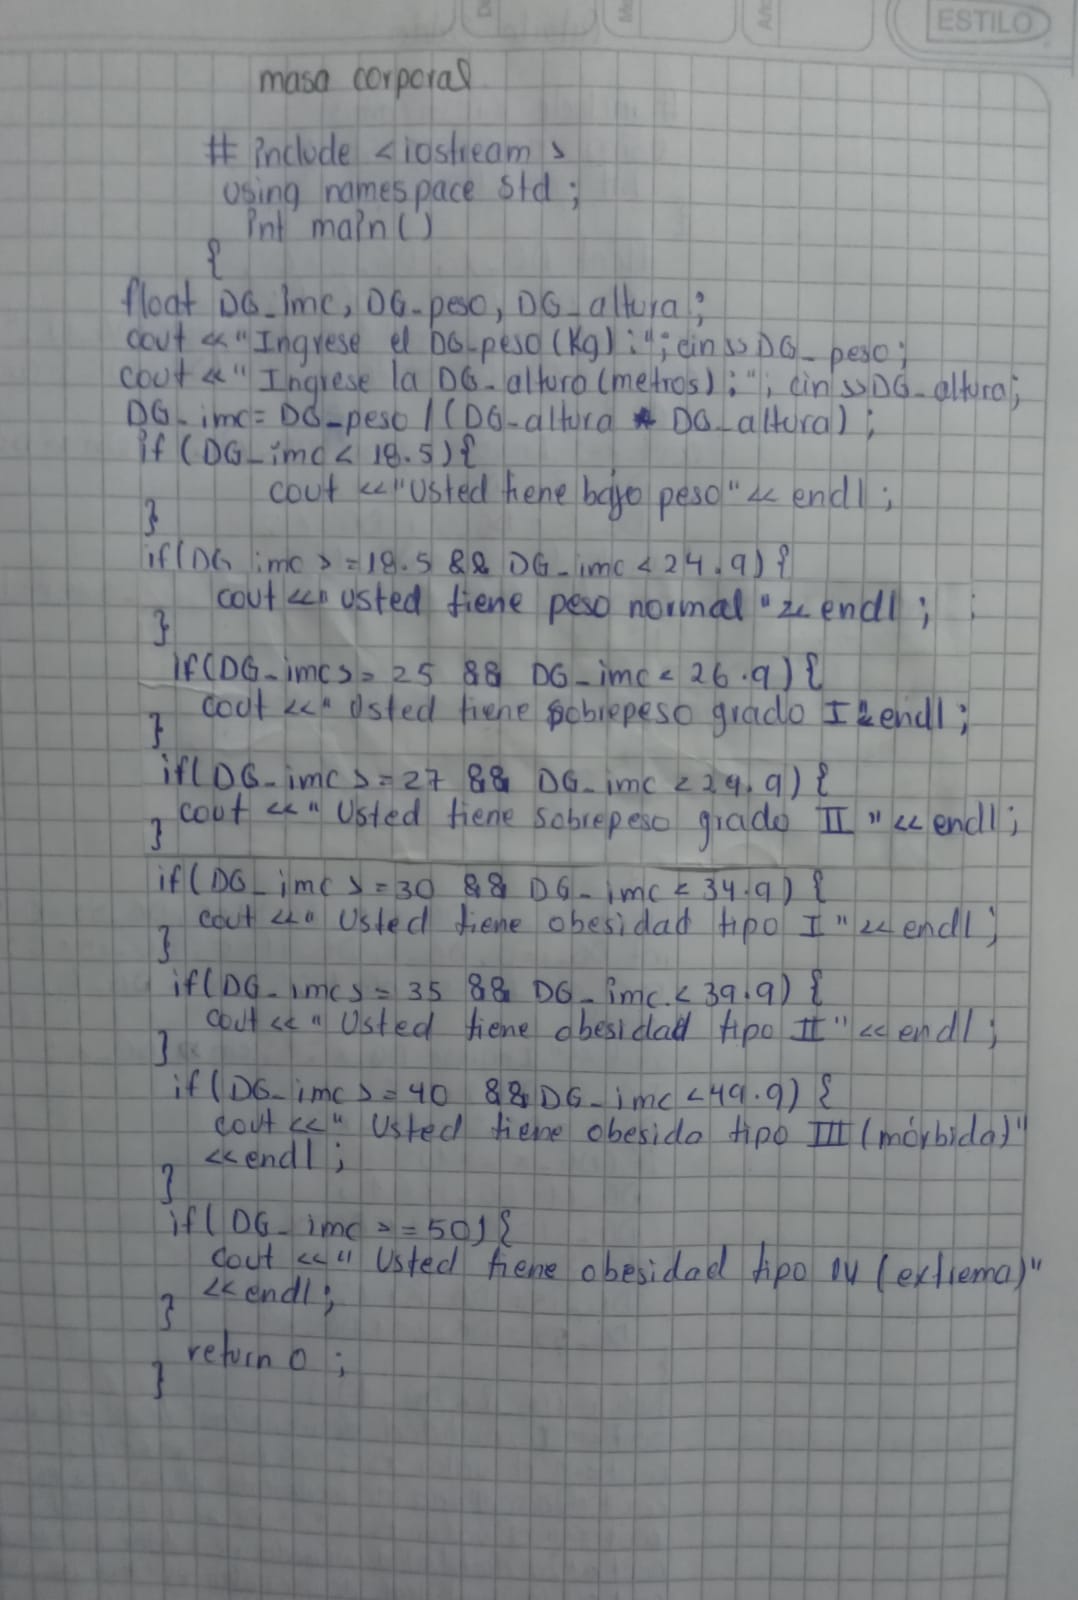 ESTILO
masa corporal
# include <iostream>
using namespace std ;
int main ()
{
float DG_imc, DG_peso, DG_altura;
cout <<"Ingrese el DG_peso (Kg) :"; cin >> DG_peso;
cout <<" Ingrese la DG_altura (metros) :"; cin >> DG_altura;
DG_imc = DG_peso / (DG_altura * DG_altura) ;
if (DG_imc < 18.5) {
cout <<"Usted tiene bajo peso" << endl ;
}
if (DG_imc >=18.5 && DG_imc < 24.9) {
cout <<" usted tiene peso normal " << endl ; ;
}
if (DG_imc >= 25 && DG_imc < 26.9) {
cout <<" Usted tiene sobrepeso grado I << endl ;
}
if (DG_imc >=27 && DG_imc < 29.9) {
cout <<" Usted tiene sobrepeso grado II " << endl ;
}
if (DG_imc >=30 && DG_imc < 34.9) {
cout <<" Usted tiene obesidad tipo I " << endl ;
}
if (DG_imc >= 35 && DG_imc < 39.9) {
cout <<" Usted tiene obesidad tipo II " << endl ;
}
if (DG_imc >=40 && DG_imc < 49.9) {
cout <<" Usted tiene obesida tipo III (mórbida)"
<< endl ;
}
if (DG_imc >=50) {
cout <<" Usted tiene obesidad tipo IV (extrema)"
<< endl ;
}
return 0 ;
}